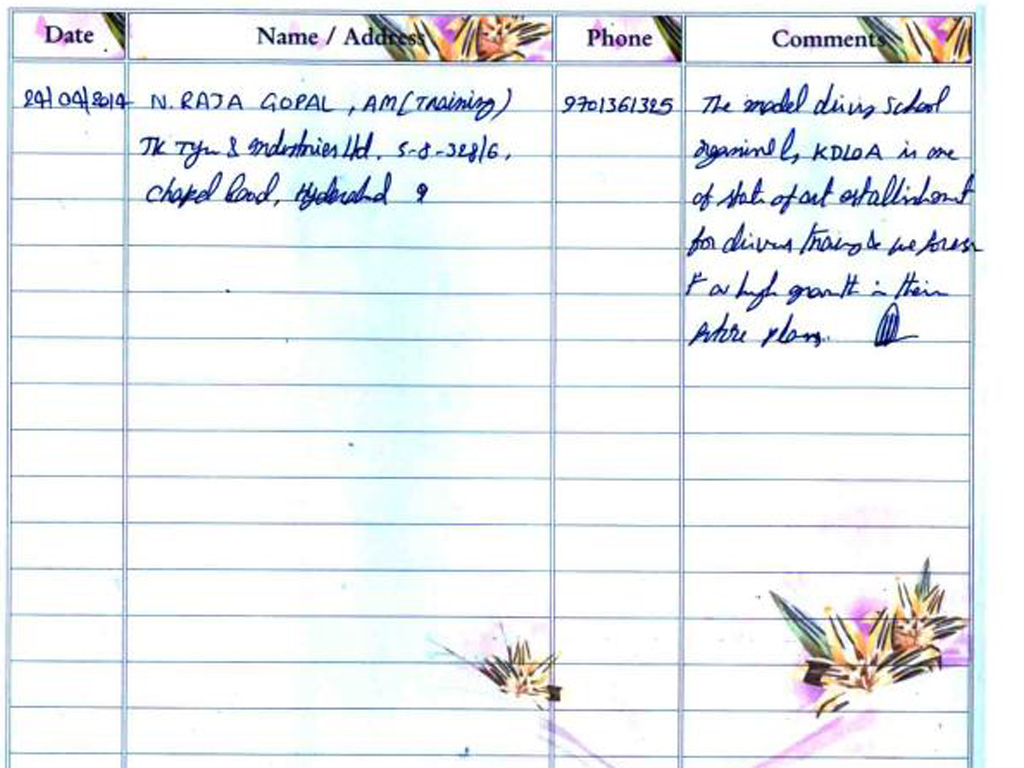 Date Name / Address Phone Comments
24/04/2014 N. RAJA GOPAL, AM (Training) 9701361325 The model driving School
JK Tyre & Industries Ltd. 5-8-328/6, KDLOA is one
Chapel Road, Hyderabad of state of art establishment
for drivers training & we
high growth in their
future plans.